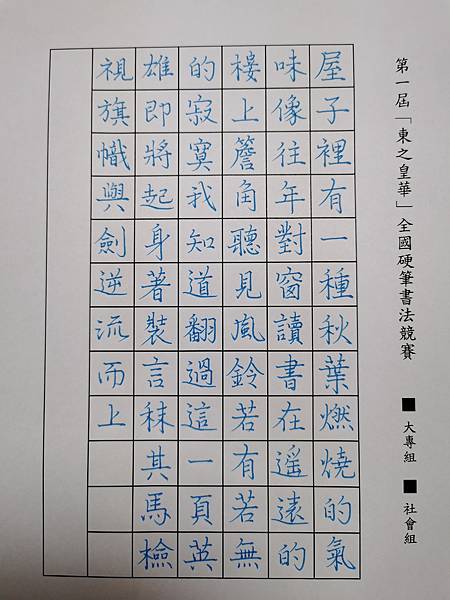 第一屆「東之皇華」全國硬筆書法競賽 ■ 大專組 ■ 社會組
屋子裡有一種秋葉燃燒的氣
味像往年對窗讀書在遙遠的
樓上簷角聽見風鈴若有若無
的寂寞我知道翻過這一頁英
雄即將起身著裝言秣其馬檢
視旗幟與劍逆流而上